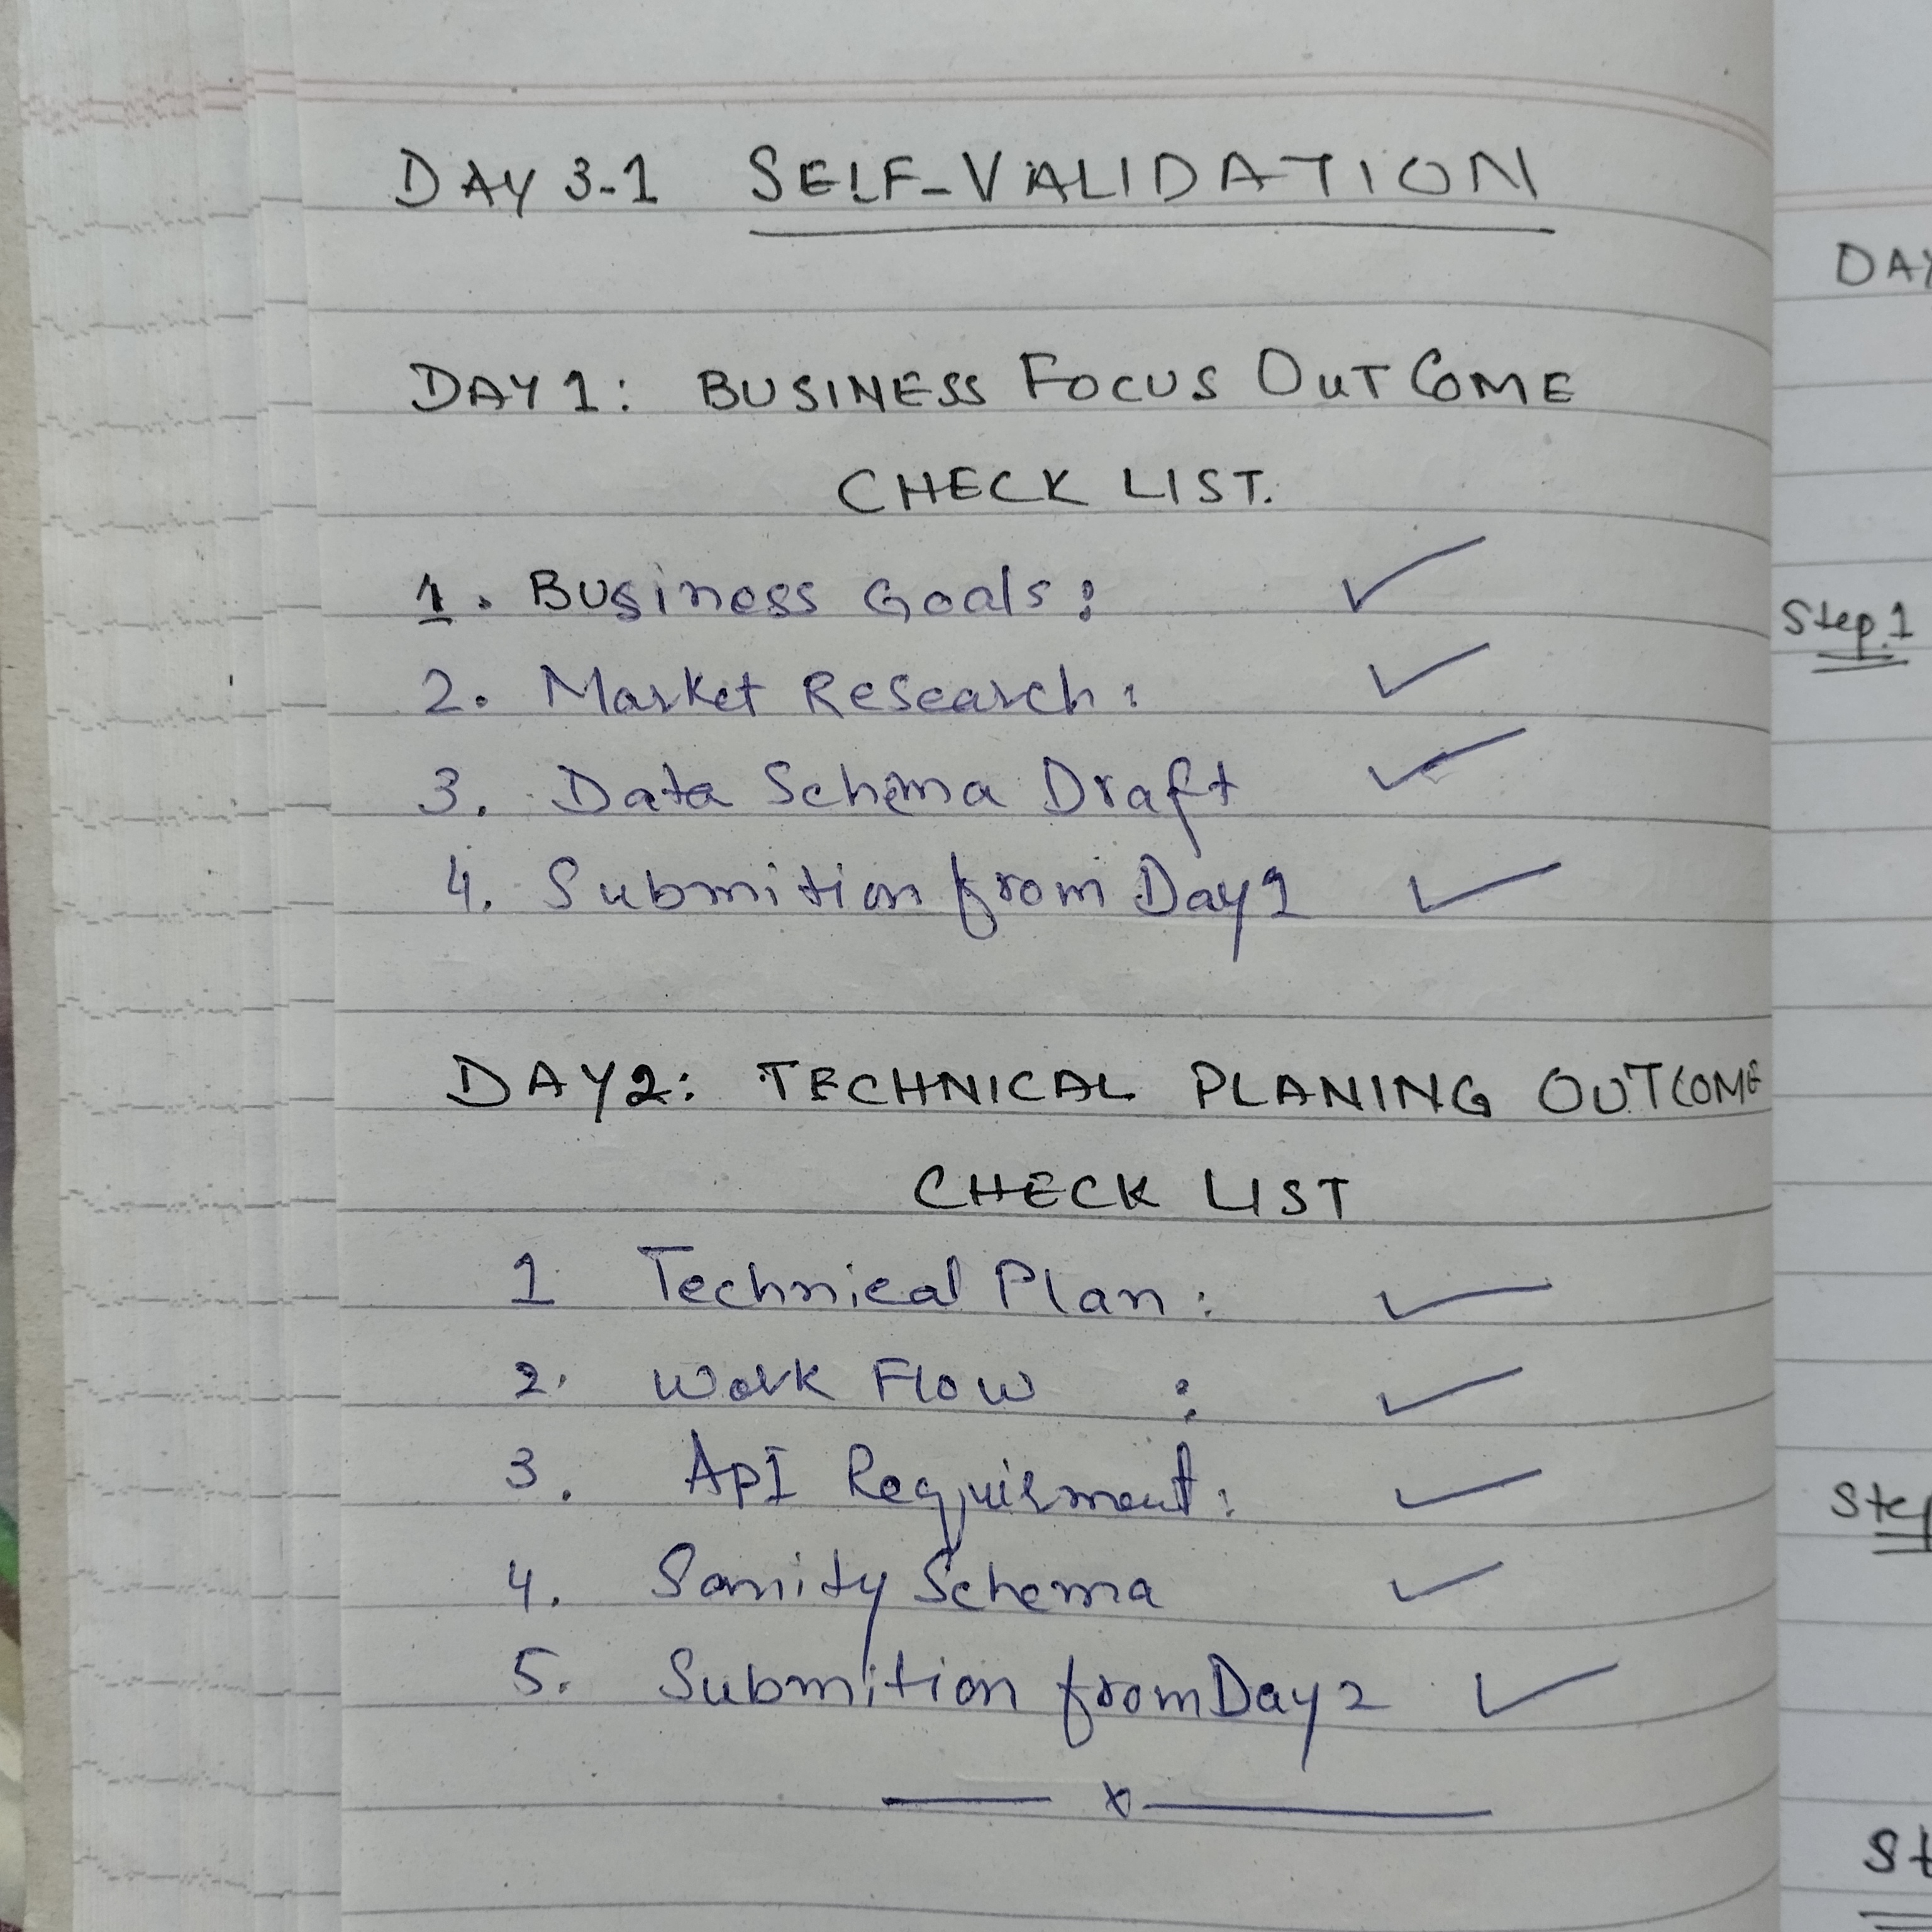 DAY 3-1 SELF-VALIDATION
DAY 1: BUSINESS FOCUS OUTCOME
CHECK LIST.
1. Business Goals: ✓
2. Market Research: ✓
3. Data Schema Draft ✓
4. Submition from Day 1 ✓
DAY 2: TECHNICAL PLANING OUTCOME
CHECK LIST
1 Technical Plan: ✓
2. Work Flow : ✓
3. ApI Requirment: ✓
4. Sanity Schema ✓
5. Submition from Day 2 ✓
x
Step 1